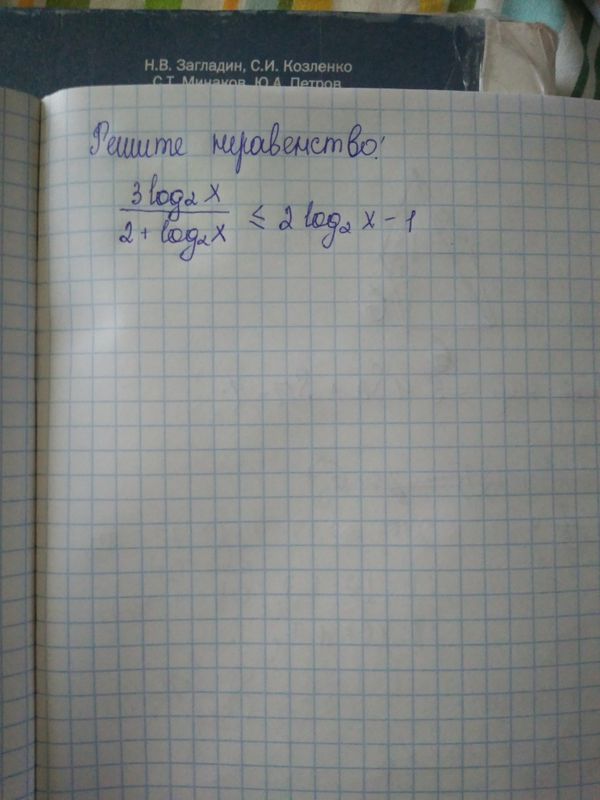 Н.В. Загладин, С.И. Козленко
С.Т. Минаков, Ю.А. Петров
Решите неравенство:
3 log₂ x / 2 + log₂ x ≤ 2 log₂ x - 1